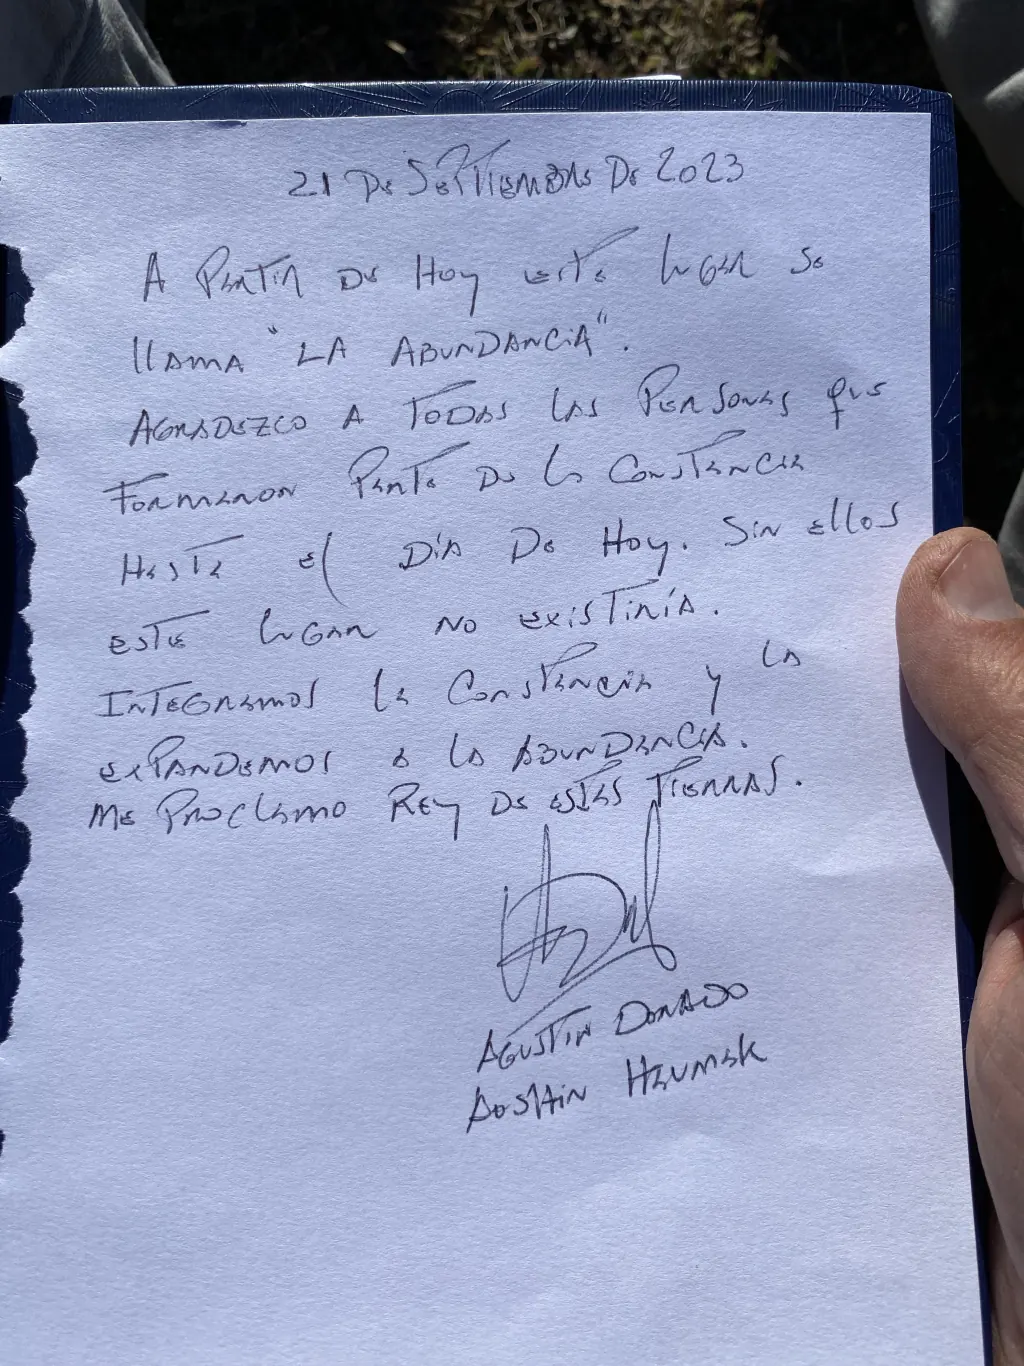 21 DE SEPTIEMBRE DE 2023
A PARTIR DE HOY ESTE LUGAR SE
LLAMA "LA ABUNDANCIA".
AGRADEZCO A TODAS LAS PERSONAS QUE
FORMARON PARTE DE LA CONSTANCIA
HASTA EL DÍA DE HOY. SIN ELLOS
ESTE LUGAR NO EXISTIRÍA.
INTEGRAMOS LA CONSTANCIA Y LA
EXPANDEMOS A LA ABUNDANCIA.
ME PROCLAMO REY DE ESTAS TIERRAS.
AGUSTIN DONADO